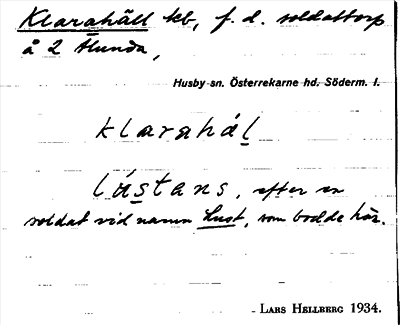 Klarahäll tkb, f. d. soldattorp
å 2 Hunda,
Husby sn. Österrekarne hd. Söderm. l.
klarahál
lústans, efter en
soldat vid namn Lust, som bodde här.
- LARS HELLBERG 1934.